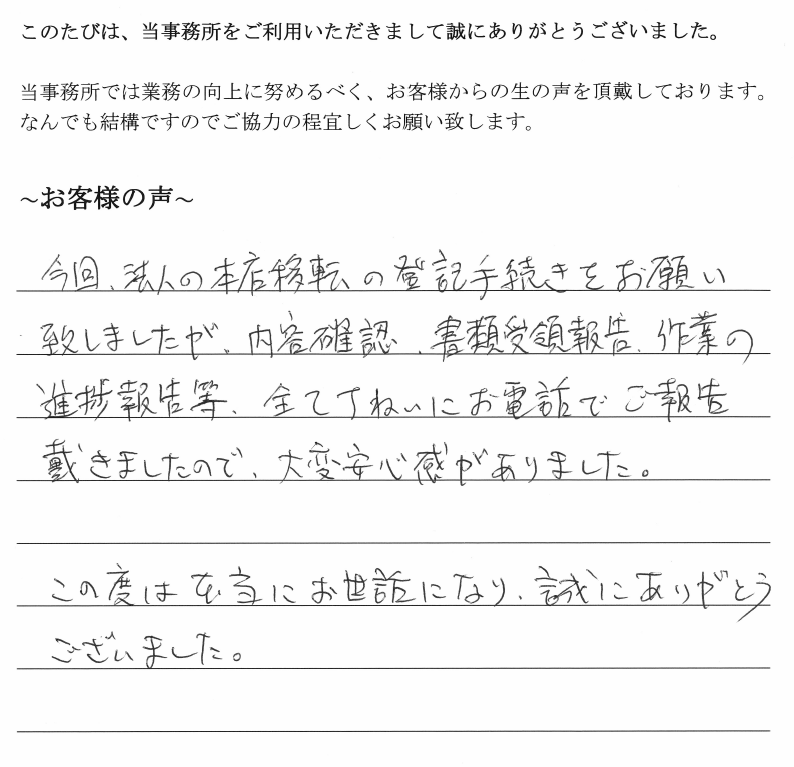 このたびは、当事務所をご利用いただきまして誠にありがとうございました。
当事務所では業務の向上に努めるべく、お客様からの生の声を頂戴しております。
なんでも結構ですのでご協力の程宜しくお願い致します。
~お客様の声~
今回、法人の本店移転の登記手続きをお願い
致しましたが、内容確認、書類受領報告、作業の
進捗報告等、全て丁ねいにお電話でご報告
戴きましたので、大変安心感がありました。
この度は本当にお世話になり、誠にありがとう
ございました。